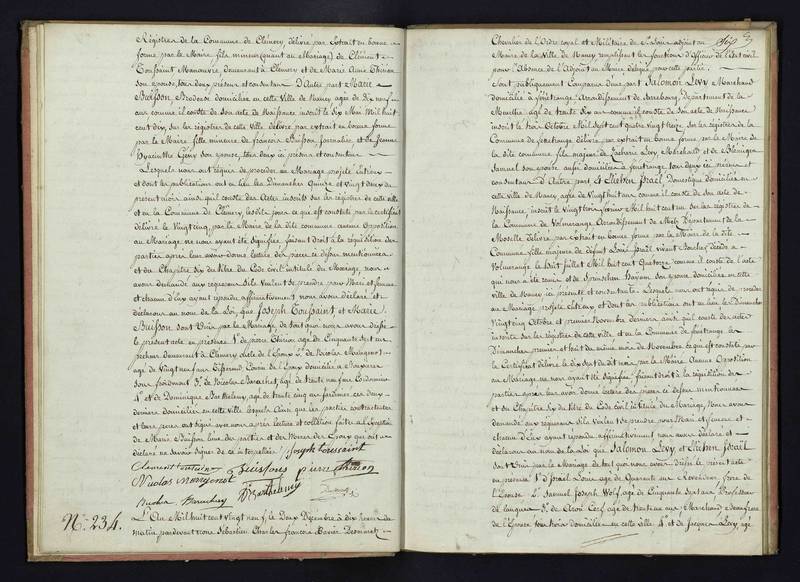 Régistres de la Commune de Clémery délivré par Extrait en bonne
forme par le Maire fils mineur (quant au Mariage) de Clément
Toussaint Manoeuvre, demeurant à Clémery et de Marie Anne Thirion
son épouse, tous deux présens et consentans D'Autre part Marie
Buisson, Brodeuse domiciliée en cette Ville de Nancy agée de dix neuf
ans comme il conste de son acte de Naissance inscrit le Six Mai Mil huit
cent dix, sur les régistres de cette Ville délivré par extrait en bonne forme
par le Maire fille mineure de François Buisson Journalier et de Jeanne
Hyacinthe Gény son épouse, tous deux ici présens et consentans
Lesquels nous ont requis de procéder au Mariage projeté Entreux
et dont les publications ont eu lieu les Dimanches Quinze et Vingt deux du
présent mois ainsi qu'il conste des Actes inscrits sur les régistres de cette ville
et en la Commune de Clémery les dits jours ce qui est constaté par le certificat
délivré le Vingt cinq, par le Maire de la dite commune aucune Opposition
au Mariage ne nous ayant été signifiée faisant droit à la réquisition des
parties après leur avoir donné lecture des pièces ci dessus mentionnées
et du Chapitre Six du titre du Code civil intitulé du Mariage, nous
avons demandé aux requérans s'ils veulent se prendre pour Mari et femme
et chacun d'Eux ayant répondu affirmativement nous avons déclaré et
déclarons au nom de la Loi que Joseph Toussaint et Marie
Buisson sont Unis par le Mariage, de tout quoi nous avons dressé
le présent acte en présence 1° de Pierre Thirion agé de Cinquante Sept ans
pecheur demeurant à Clémery oncle de l'Epoux 2° de Nicolas Mangenot
agé de Vingt neuf ans Cousin de l'Epoux domicilié à
sous froidmont 3° de Nicolas Barachet, agé de trente neuf ans Cordonnier
4° et de Dominique Barthelemy, agé de trente cinq ans Jardinier ces deux
derniers domiciliés en cette ville lesquels Ainsi que les parties contractantes
et leurs peres ont signé avec nous après lecture et collation faite à l'Exception
de Marie Buisson l'une des parties et des Meres des Epoux qui ont
déclaré ne savoir signer de ce interpellés Joseph toussaint
Clement toussain Buissons pierre thirion
Nicolas mangenot
Nicolas Barachey D Barthelemy
N° 234. L'An Mil huit cent Vingt neuf, le Deux Décembre à dix heures du
matin pardevant nous Sébastien Charles françois Xavier Desmaret
Chevalier de l'Ordre royal et Militaire de St Louis adjoint au
Maire de la Ville de Nancy remplissant les fonctions d'Officier de l'Etat civil
pour l'Absence de l'Adjoint au Maire délégué pour cette partie
Sont publiquement Comparus d'une part Salomon Levy Marchand
domicilié à fénétrange, Arrondissement de Sarrebourg, département de la
Meurthe agé de trente Six ans comme il conste de son acte de Naissance
inscrit le Octobre Mil Sept cent quatre Vingt treize sur les régistres de la
Commune de fénétrange délivré par extrait en bonne forme par le Maire de
la dite commune fils majeur de Zacharie Levy Marchand et de
Samuel son épouse aussi domiciliés à fénétrange tous deux ici présens et
consentans D'Autre part Israël Domestique domiciliée en
cette Ville de Nancy, agée de Vingt huit ans comme il conste de son acte de
Naissance, inscrit le Vingt trois février Mil huit cent un sur les régistres de
la Commune de Volmerange Arrondissement de Metz Département de la
Moselle délivré par Extrait en bonne forme par le Maire de la dite
Commune fille majeure de défunt Louis Israël vivant Boucher décédé à
Volmerange le huit Juillet Mil huit cent Quatorze comme il conste de l'acte
qui nous a été remis et de Hayem son épouse domiciliée en cette
Ville de Nancy ici présente et consentante. Lesquels nous ont requis de procéder
au Mariage projeté Entreux et dont les publications ont eu lieu les Dimanches
Vingt cinq Octobre et premier Novembre derniers ainsi qu'il conste des actes
inscrits sur les régistres de cette ville et en la Commune de fénétrange les
Dimanches premier et huit du même mois de Novembre ce qui est constaté par
le Certificat délivré le dix Sept du dit mois, par le Maire. Aucune Opposition
au Mariage ne nous ayant été signifiée faisant droit à la réquisition des
parties après leur avoir donné lecture des pièces ci dessus mentionnées
et du Chapitre Six du titre du Code civil intitulé du Mariage, Nous avons
demandé aux requérans s'ils veulent se prendre pour Mari et femme et
chacun d'Eux ayant répondu affirmativement nous avons déclaré et
déclarons au nom de la Loi que Salomon Levy et Israël
sont Unis par le Mariage de tout quoi nous avons dressé le présent acte
en présence 1° d'Israël Louis agé de Quarante ans Revendeur frere de
l'Epouse 2° Samuel Joseph Wolf, agé de Cinquante Sept ans Professeur
de langues 3° de Cerf agé de trente six ans Marchand beau frere
de l'Epouse tous trois domiciliés en cette ville 4° et de Jacques Levy, agé